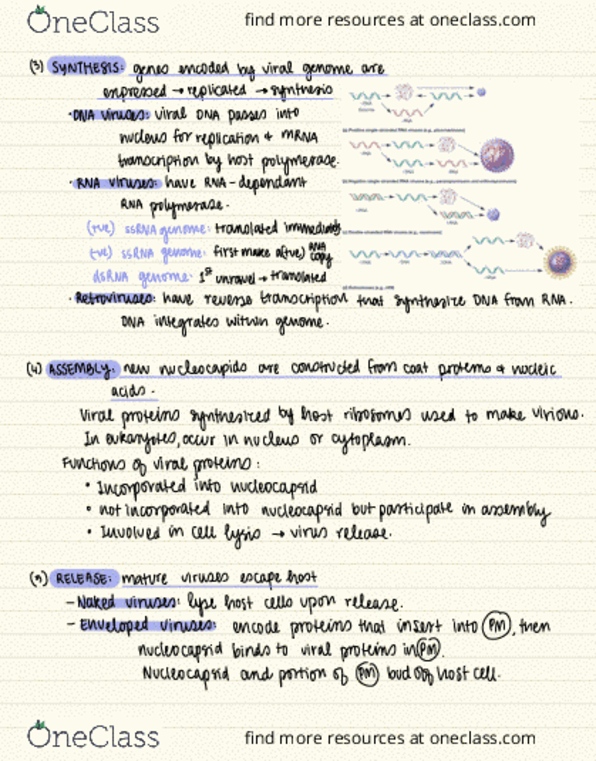 OneClass find more resources at oneclass.com
(3) SYNTHESIS: genes encoded by viral genome are
expressed → replicated → synthesis
· DNA viruses: viral DNA passes into
nucleus for replication & mRNA
transcription by host polymerase.
· RNA viruses: have RNA-dependant
RNA polymerase.
(+ve) ssRNA genome: translated immediately
ssRNA genome: first make a (+ve) RNA copy
dsRNA genome: 1st unravel → translated
· Retroviruses: have reverse transcription that synthesize DNA from RNA.
DNA integrates within genome.
(4) ASSEMBLY: new nucleocapids are constructed from coat proteins & nucleic
acids.
Viral proteins synthesized by host ribosomes used to make virions.
In eukaryotes, occur in nucleus or cytoplasm.
Functions of viral proteins:
• Incorporated into nucleocapsid
• not incorporated into nucleocapsid but participate in assembly
• Involved in cell lysis → virus release.
(5) RELEASE: mature viruses escape host
- Naked viruses: lyse host cells upon release.
- Enveloped viruses: encode proteins that insert into PM, then
nucleocapsid binds to viral proteins in PM.
Nucleocapsid and portion of PM bud off host cell.
OneClass find more resources at oneclass.com